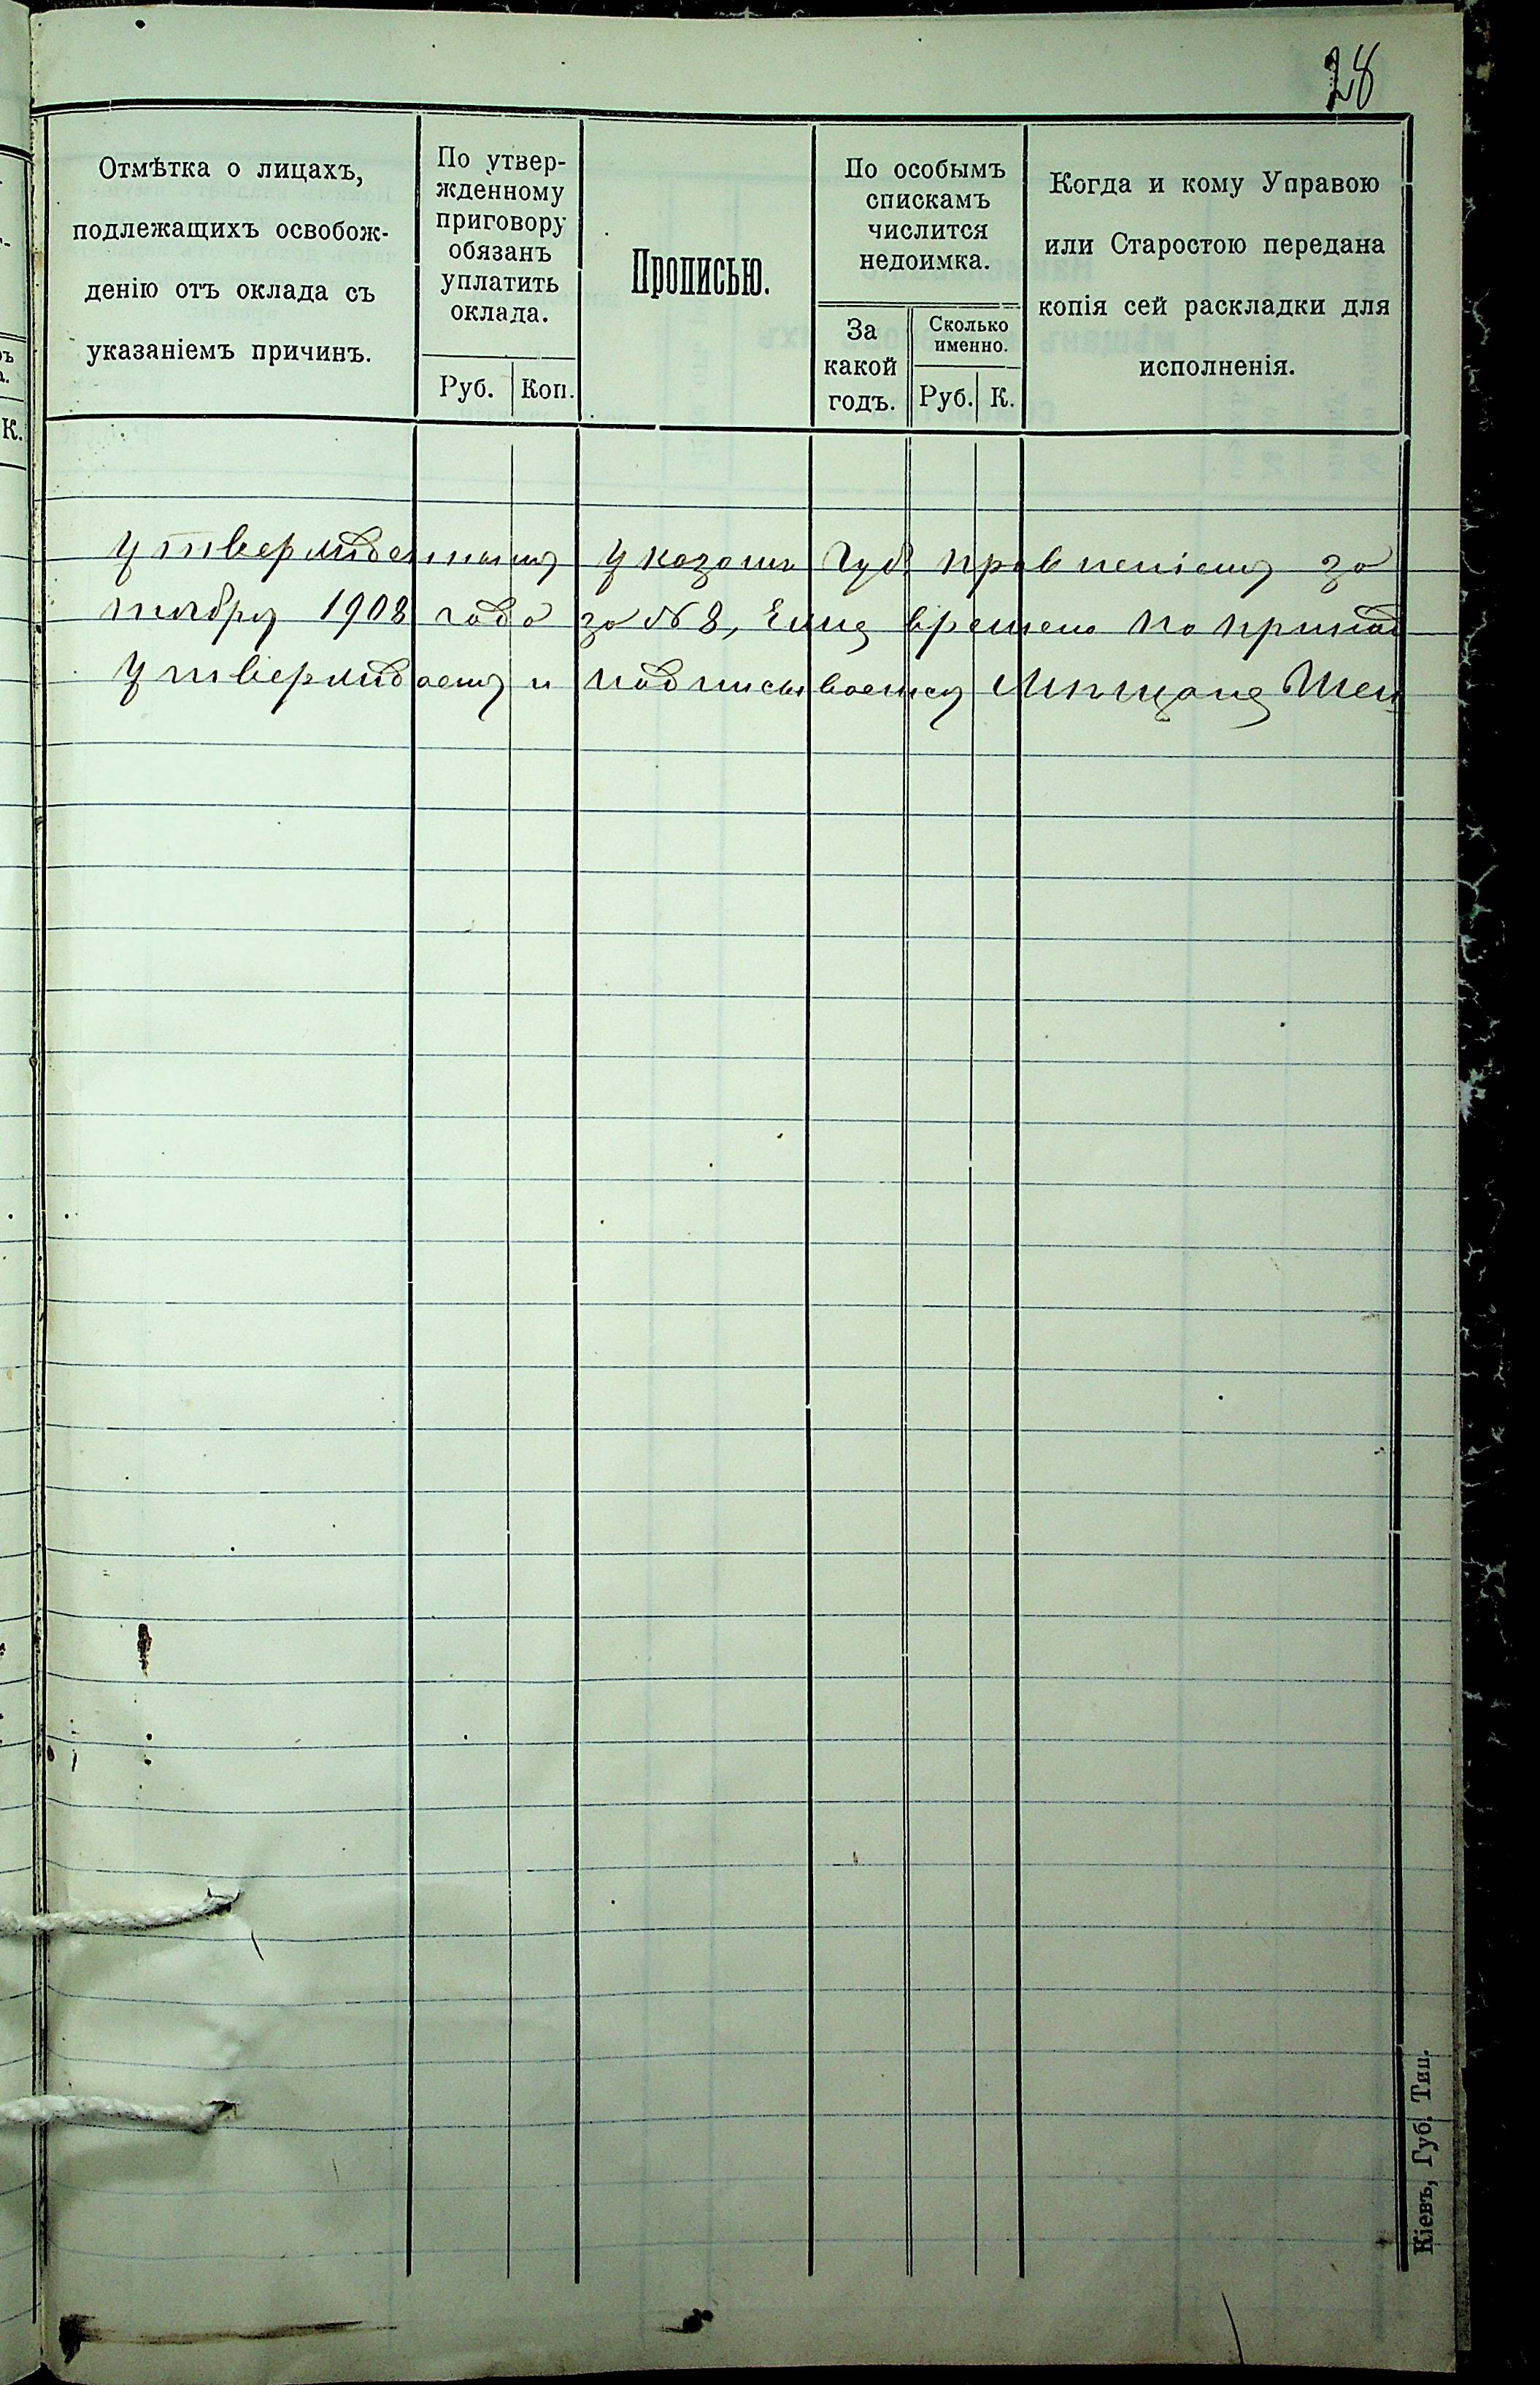 28
Отмѣтка о лицахъ,
подлежащихъ освобож-
денію отъ оклада съ
указаніемъ причинъ.
По утвер-
жденному
приговору
обязанъ
уплатить
оклада.
Руб.
Коп.
Прописью.
По особымъ
спискамъ
числится
недоимка.
За
какой
годъ.
Сколько
именно.
Руб.
К.
Когда и кому Управою
или Старостою передана
копія сей раскладки для
исполненія.
К.
Утвержденному Указомъ Губ. правленіемъ за
ноября 1908 года за № 8,
Утверждаемъ и подписываемся Мѣщане
Кіевъ, Губ. Тип.